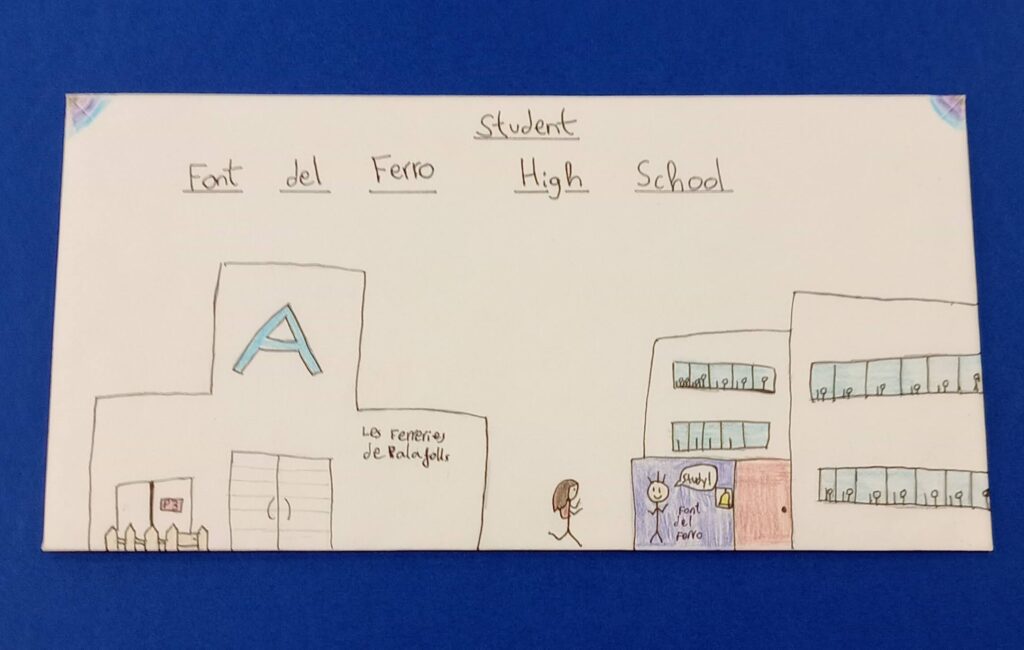 Student
Font del Ferro High School
A
Les Ferreries
de Palafolls
P3
Study!
Font
del
Ferro